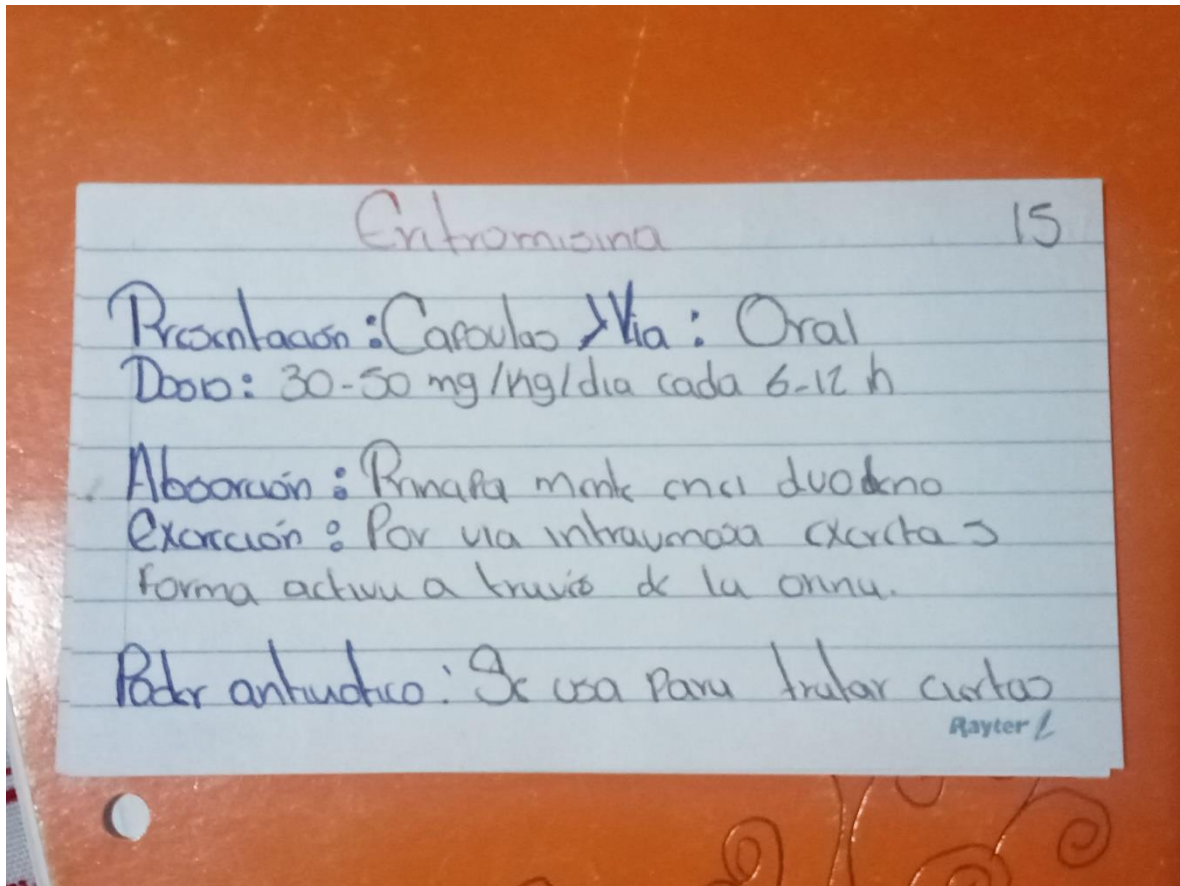 Eritromisina 15
Presentación: Capsulas > Via: Oral
Dosis: 30-50 mg/kg/dia cada 6-12 h
Absorción: Principa mente en el duodeno
Excreción: Por via intravenosa excreta
forma activa a través de la orina.
Poder antibiotico: Se usa para tratar ciertas
Rayter